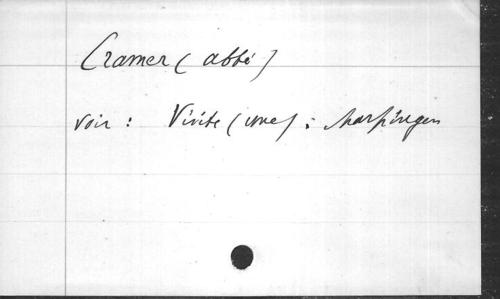 Cramer (abbé)
voir : Visite (une) : Marpingen